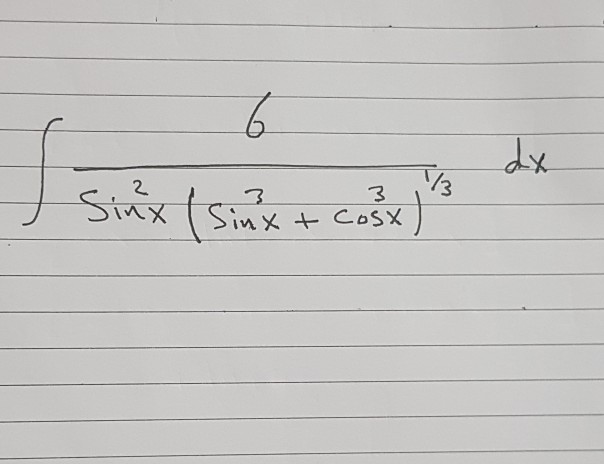 ∫ 6 / (Sin²x (Sin³x + Cos³x)^1/3) dx